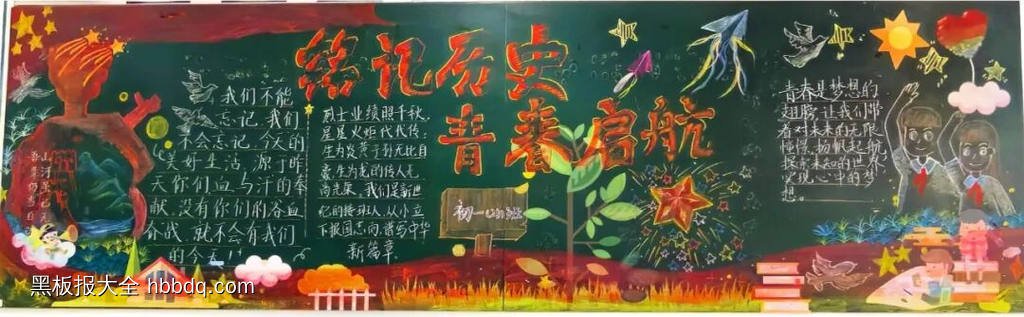 铭记历史
青春启航
我们不能
忘记,我们
不会忘记,今天的
美好生活,源于昨
天你们血与汗的奉
献,没有你们的浴血
奋战,就不会有我们
的今天!!
烈士业绩照千秋,
星星火炬代代传;
生为炎黄子孙无比自
豪,生为龙的传人无
尚光荣,我们是新世
纪的接班人,从小立
下报国志向,谱写中华
新篇章.
初一
青春是梦想的
翅膀,让我们带
着对未来的无限
憧憬,扬帆起航,
探索未知的世界,
实现心中的梦
想.
黑板报大全 hbbdq.com